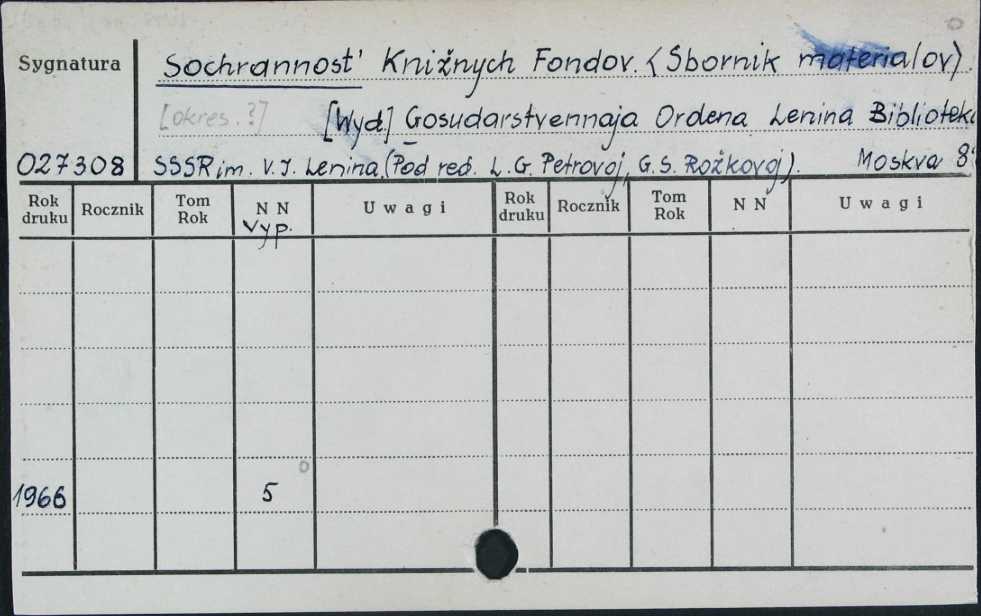 Sygnatura
Sochrannost' Knižnych Fondov. (Sbornik materialov).
[okres.?] [Wyd.] Gosudarstvennaja Ordena Lenina Biblioteka
027308 SSSR im. V.I. Lenina. (Pod red. L.G. Petrovoj, G.S. Rožkovoj). Moskva 8°
Rok druku Rocznik Tom Rok N N Uwagi Rok druku Rocznik Tom Rok N N Uwagi
Vyp.
1966 5